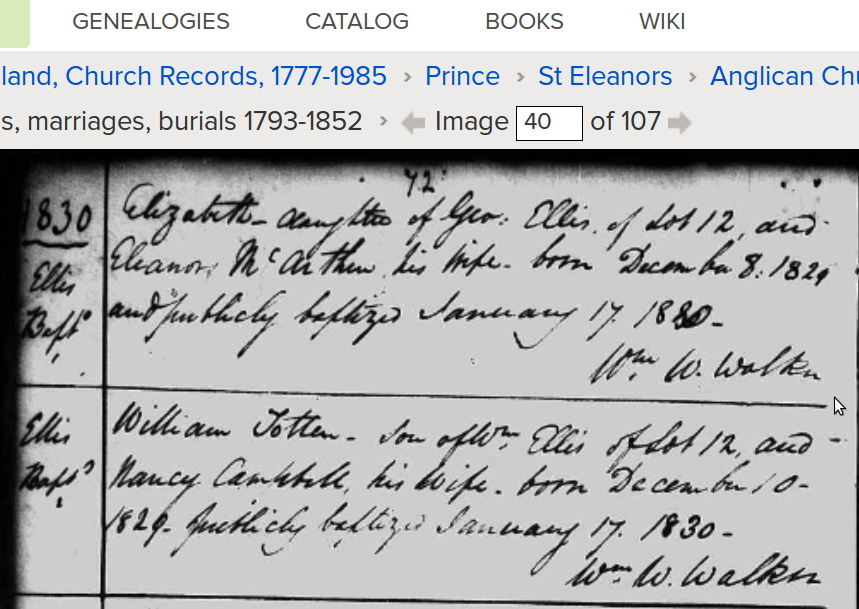 GENEALOGIES CATALOG BOOKS WIKI
land, Church Records, 1777-1985 › Prince › St Eleanors › Anglican Chu
s, marriages, burials 1793-1852 › Image 40 of 107
72
1830 Elizabeth - daughter of Geo: Ellis, of Lot 12, and
Ellis Eleanor McArthur, his Wife - born December 8. 1829
Bapt^d and publicly baptized January 17. 1830 -
Wm W. Walker
Ellis William Totten - Son of Wm Ellis of Lot 12, and -
Bapt^d Nancy Campbell, his Wife - born December 10 -
1829 - publicly baptized January 17. 1830 -
Wm W. Walker